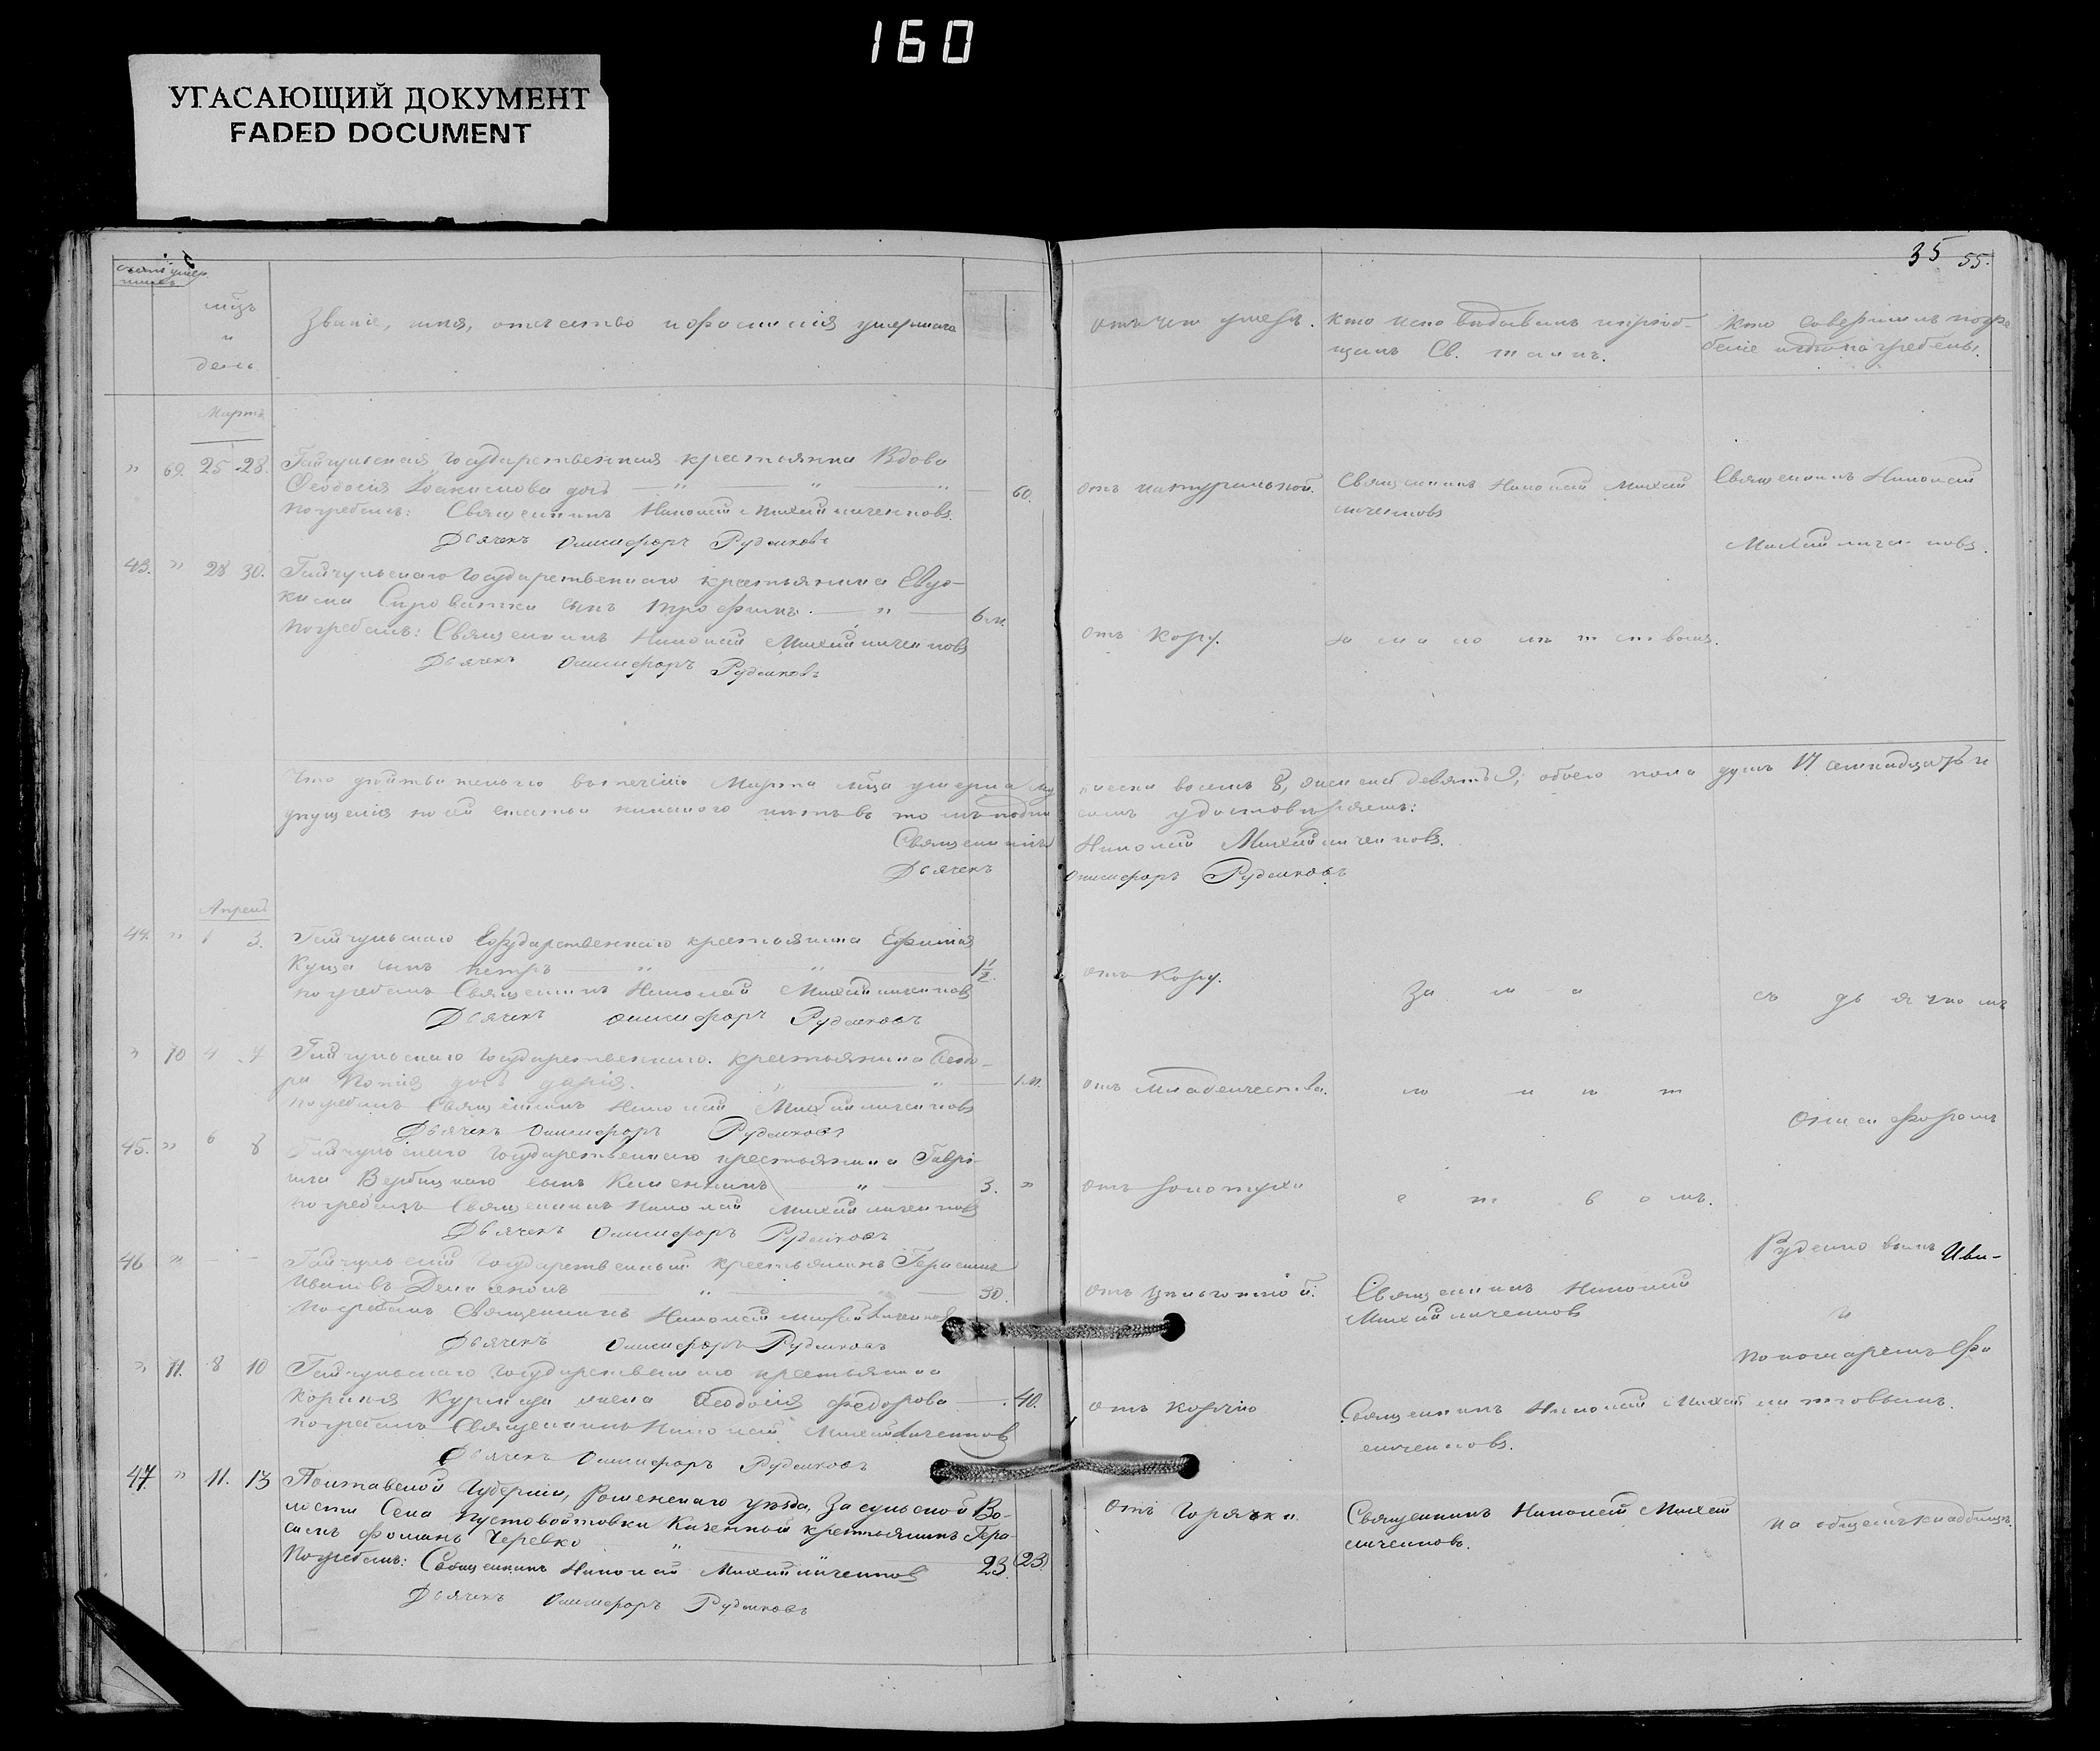 160
УГАСАЮЩИЙ ДОКУМЕНТ
FADED DOCUMENT
35 55.
счетъ умер
шихъ
мѣц
и
день
Званіе, имя, отчество и фамилія умершаго
отъ чего умеръ.
Кто исповѣдывалъ и пріоб-
щалъ Св. таинъ.
Кто совершилъ погре
беніе и гдѣ погребены.
Мартъ
" 69. 25 28.
Гайчульская государственная крестьянка Вдова
Ѳеодосія Іоакимова дочь " " "
60.
Погребалъ: Священникъ Николай Михайличенковъ
Дьячекъ Онисифоръ Рудановъ
отъ натуральной.
Священникъ Николай Михай
личенковъ
Священникъ Николай
Михайличенковъ.
43. " 28 30.
Гайчульскаго государственнаго крестьянина Евдо-
кима Сироватки сынъ Трофимъ. "
6 м.
Погребалъ: Священникъ Николай Михайличенковъ
Дьячекъ Онисифоръ Рудановъ
отъ Кору.
за малолѣтствомъ.
Что дѣйствительно въ теченіи Марта мѣца умерло му
жеска восемь 8, женска девять 9, обоего пола душъ 17 семнадцать и
упущенія по сей статьи никакого нѣтъ въ томъ подпи
сомъ удостовѣряемъ:
Священникъ Николай Михайличенковъ.
Дьячекъ Онисифоръ Рудановъ
Апрель
44. " 1 3.
Гайчульскаго Государственнаго крестьянина Ефимія
Куца сынъ Петръ " "
1½.
погребалъ Священникъ Николай Михайличенковъ
Дьячекъ Онисифоръ Рудановъ
отъ Кору.
За м а
съ дьячкомъ
" 70 4 7
Гайчульскаго государственнаго крестьянина Ѳеодо-
ра дочь Дарія. " "
1 м.
погребалъ Священникъ Николай Михайличенковъ
Дьячекъ Онисифоръ Рудановъ
отъ Младенчества.
л о л ѣ т
Онисифоромъ
45. " 6 8
Гайчульскаго государственнаго крестьянина Гаврі-
ила Вербицкаго сынъ "
3. "
погребалъ Священникъ Николай Михайличенковъ
Дьячекъ Онисифоръ Рудановъ
отъ золотухи
с т в о мъ.
46 " - -
Гайчульскій государственный крестьянинъ Герасимъ
Ивановъ "
30.
Погребалъ Священникъ Николай Михайличенковъ
Дьячекъ Онисифоръ Рудановъ
Священникъ Николай
Михайличенковъ
и
Пономаремъ
" 71. 8 10
Гайчульскаго государственнаго крестьянина
жена Ѳеодосія Федорова
40.
погребалъ Священникъ Николай Михайличенковъ
Дьячекъ Онисифоръ Рудановъ
отъ
Священникъ Николай Михай
личенковъ.
47 " 11. 13
Полтавской Губерніи, Роменскаго уѣзда, Засульской Во-
лости Села Пустовойтовки Казенный крестьянинъ Гера-
симъ Фоминъ Черевко "
23. (23)
Погребалъ: Священникъ Николай Михайличенковъ
Дьячекъ Онисифоръ Рудановъ
отъ Горячки.
Священникъ Николай Михай
личенковъ.
на общемъ кладбищѣ.